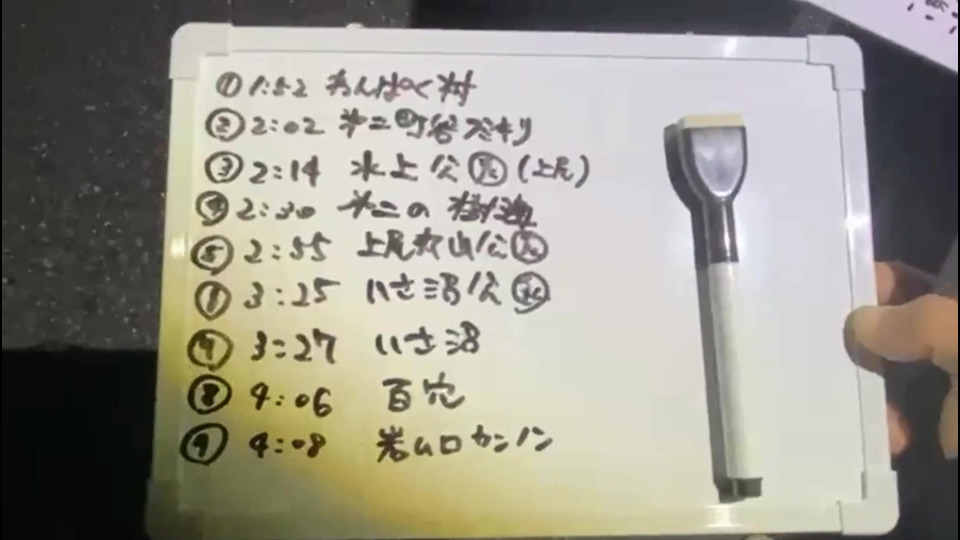 ① 1:52 わんぱく村
② 2:02 第二町谷フミキリ
③ 2:14 水上公園 (上尾)
④ 2:30 第二の
⑤ 2:55 上尾丸山公園
⑥ 3:25 いさ沼公園
⑦ 3:27 いさ沼
⑧ 4:06 百穴
⑨ 4:08 岩ムロカンノン